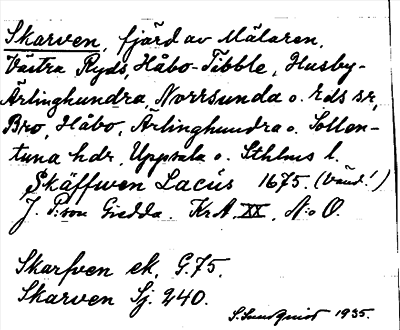 Skarven, fjärd av Mälaren,
Västra Ryds, Håbo-Tibble, Husby-
Ärlinghundra, Norrsunda o. Eds snr,
Bro, Håbo, Ärlinghundra o. Sollen-
tuna hdr, Uppsala o. Sthlms l.
Skäffwen Lacus 1675. (Vänd!)
J. P:son Gedda. KrA. XX, N:o 0.
Skarfven ek. G.75.
Skarven Sj. 240.
S. Sundquist 1935.